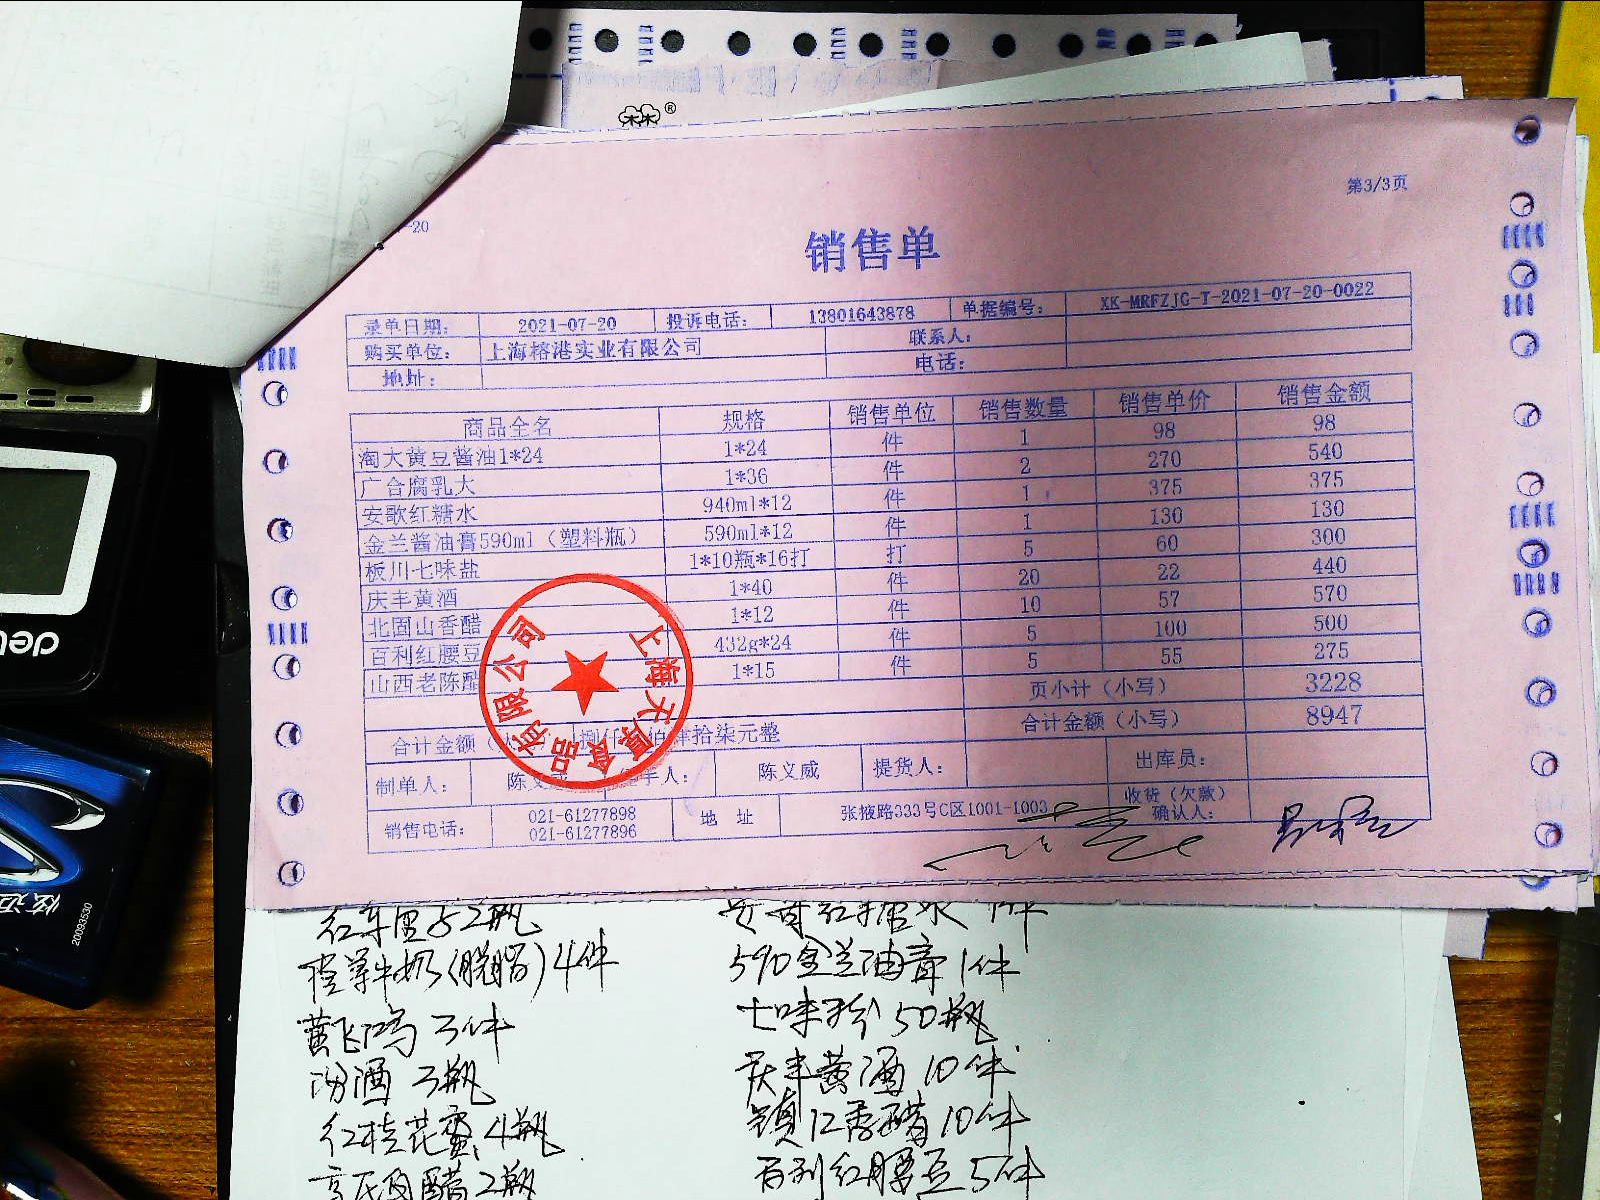 第3/3页
-20
销售单
录单日期： 2021-07-20 投诉电话： 13801643878 单据编号： XK-MRFZJG-T-2021-07-20-0022
购买单位： 上海榕港实业有限公司 联系人：
地址： 电话：
商品全名 规格 销售单位 销售数量 销售单价 销售金额
淘大黄豆酱油1*24 1*24 件 1 98 98
广合腐乳大 1*36 件 2 270 540
安歌红糖水 940ml*12 件 1 375 375
金兰酱油膏590ml（塑料瓶） 590ml*12 件 1 130 130
板川七味盐 1*10瓶*16打 打 5 60 300
庆丰黄酒 1*40 件 20 22 440
北固山香醋 1*12 件 10 57 570
百利红腰豆 432g*24 件 5 100 500
山西老陈醋 1*15 件 5 55 275
页小计（小写） 3228
合计金额 捌仟 佰肆拾柒元整 合计金额（小写） 8947
制单人： 陈义威 经手人： 陈义威 提货人： 出库员：
销售电话： 021-61277898 地 址 张掖路333号C区1001-1003 收货（欠款）
021-61277896 确认人：
上海天厚食品有限公司
deli
炫迈
20093530
红车厘子2瓶
牛奶(脱脂)4件 590金兰油膏1件
黄飞鸿3件 七味粉50瓶
汾酒3瓶 庆丰黄酒10件
红桂花蜜4瓶 镇江香醋10件
2瓶 百利红腰豆5件